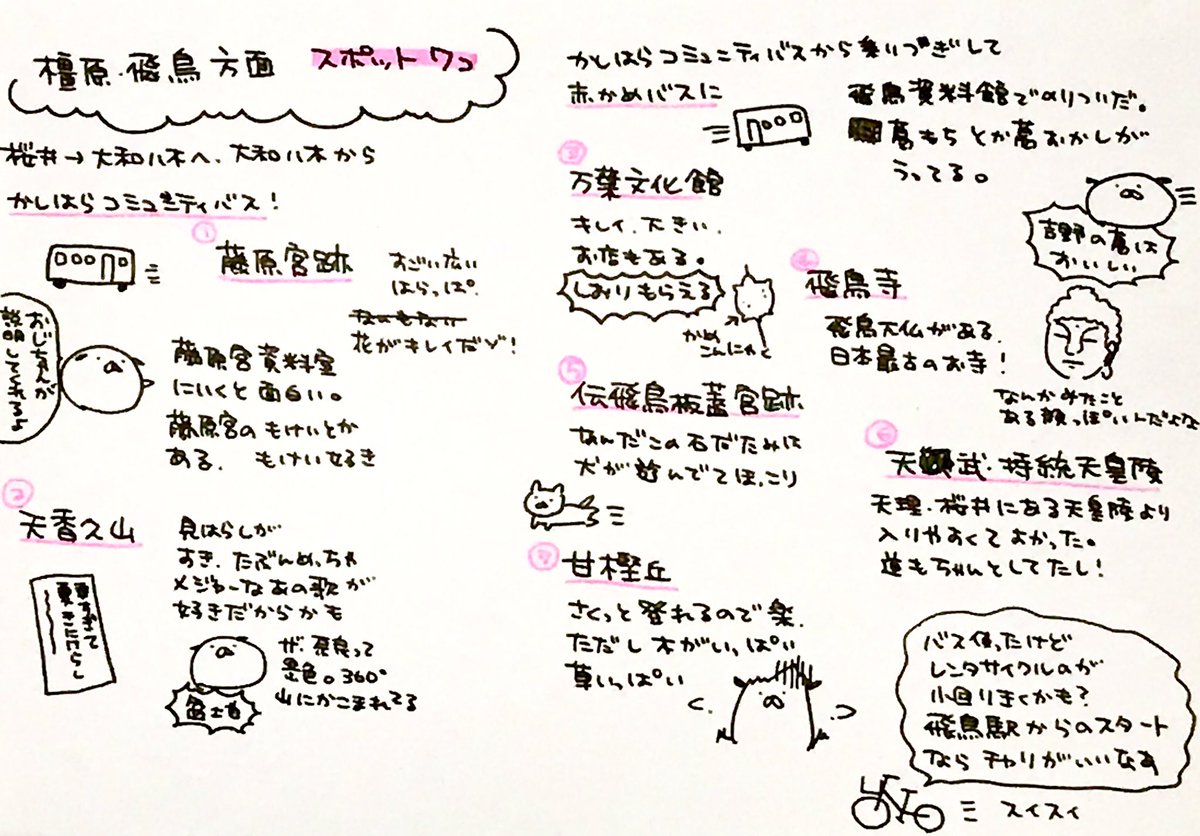 橿原・飛鳥方面 スポットワコ
桜井→大和八木へ、大和八木から
かしはらコミュニティバス!
①
藤原宮跡
すごい広い
はらっぱ。
なにもない
花がキレイだゾ!
おじちゃんが
説明してくれるよ
藤原宮資料室
にいくと面白い。
藤原宮のもけいとか
ある。もけい好き
②
天香久山
見はらしが
すき、たぶんめっちゃ
メジャーなあの歌が
好きだからかも
春すぎて
夏きにけらし
ザ・奈良って
景色。360°
山にかこまれてる
かしはらコミュニティバスから乗りつぎして
赤かめバスに
飛鳥資料館でのりついだ。
葛もちとか葛おかしが
うってる。
吉野の葛は
おいしい
③
万葉文化館
キレイ、大きい、
お店もある。
しおりもらえる
かめ
こんにゃく
④
飛鳥寺
飛鳥大仏がある、
日本最古のお寺!
なんかみたこと
ある顔っぽいんだよな
⑤
伝飛鳥板蓋宮跡
なんだこの石だたみに
犬が遊んでてほっこり
⑥
天武・持統天皇陵
天理・桜井にある天皇陵より
入りやすくてよかった。
道もちゃんとしてたし!
⑦
甘樫丘
さくっと登れるので楽、
ただし木がいっぱい
草いっぱい
バス使ったけど
レンタサイクルのが
小回りきくかも?
飛鳥駅からのスタート
ならチャリがいいなあ
スイスイ